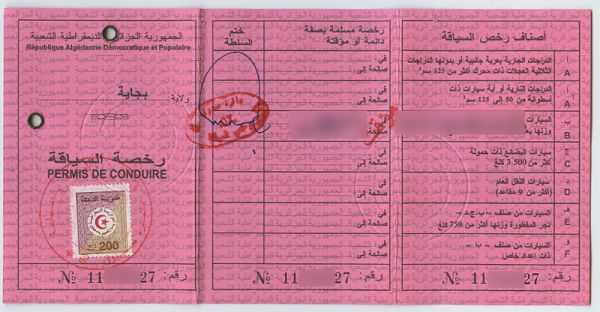 الجمهورية الجزائرية الديمقراطية الشعبية
République Algérienne Démocratique et Populaire
ولاية: بجاية
رخصة السياقة
PERMIS DE CONDUIRE
200
رقم: 27 11 №
ختم السلطة
رخصة مسلمة بصفة
دائمة أو مؤقتة
في
صالحة إلى:
في
صالحة إلى:
في
صالحة إلى:
في
صالحة إلى:
في
صالحة إلى:
في
صالحة إلى:
في
صالحة إلى:
رقم: 27 11 №
أصناف رخص السياقة
أ
A
الدراجات النارية بعربة جانبية أو بدونها الدراجات
الثلاثية العجلات ذات محرك أكثر من 125 سم³
أ
A
الدراجات النارية أو أية سيارات ذات
أسطوانة من 50 إلى 125 سم³
ب
B
السيارات
وزنها
ج
C
سيارات البضائع ذات حمولة
أكثر من 3.500 كلغ
د
D
سيارات النقل العام
(أكثر من 9 مقاعد)
هـ
E
السيارات من صنف – ب.ج.د. –
تجر المقطورة وزنها أكثر من 750 كلغ
و
F
السيارات من صنف – ب. –
ذات إعداد خاص
رقم: 27 11 №